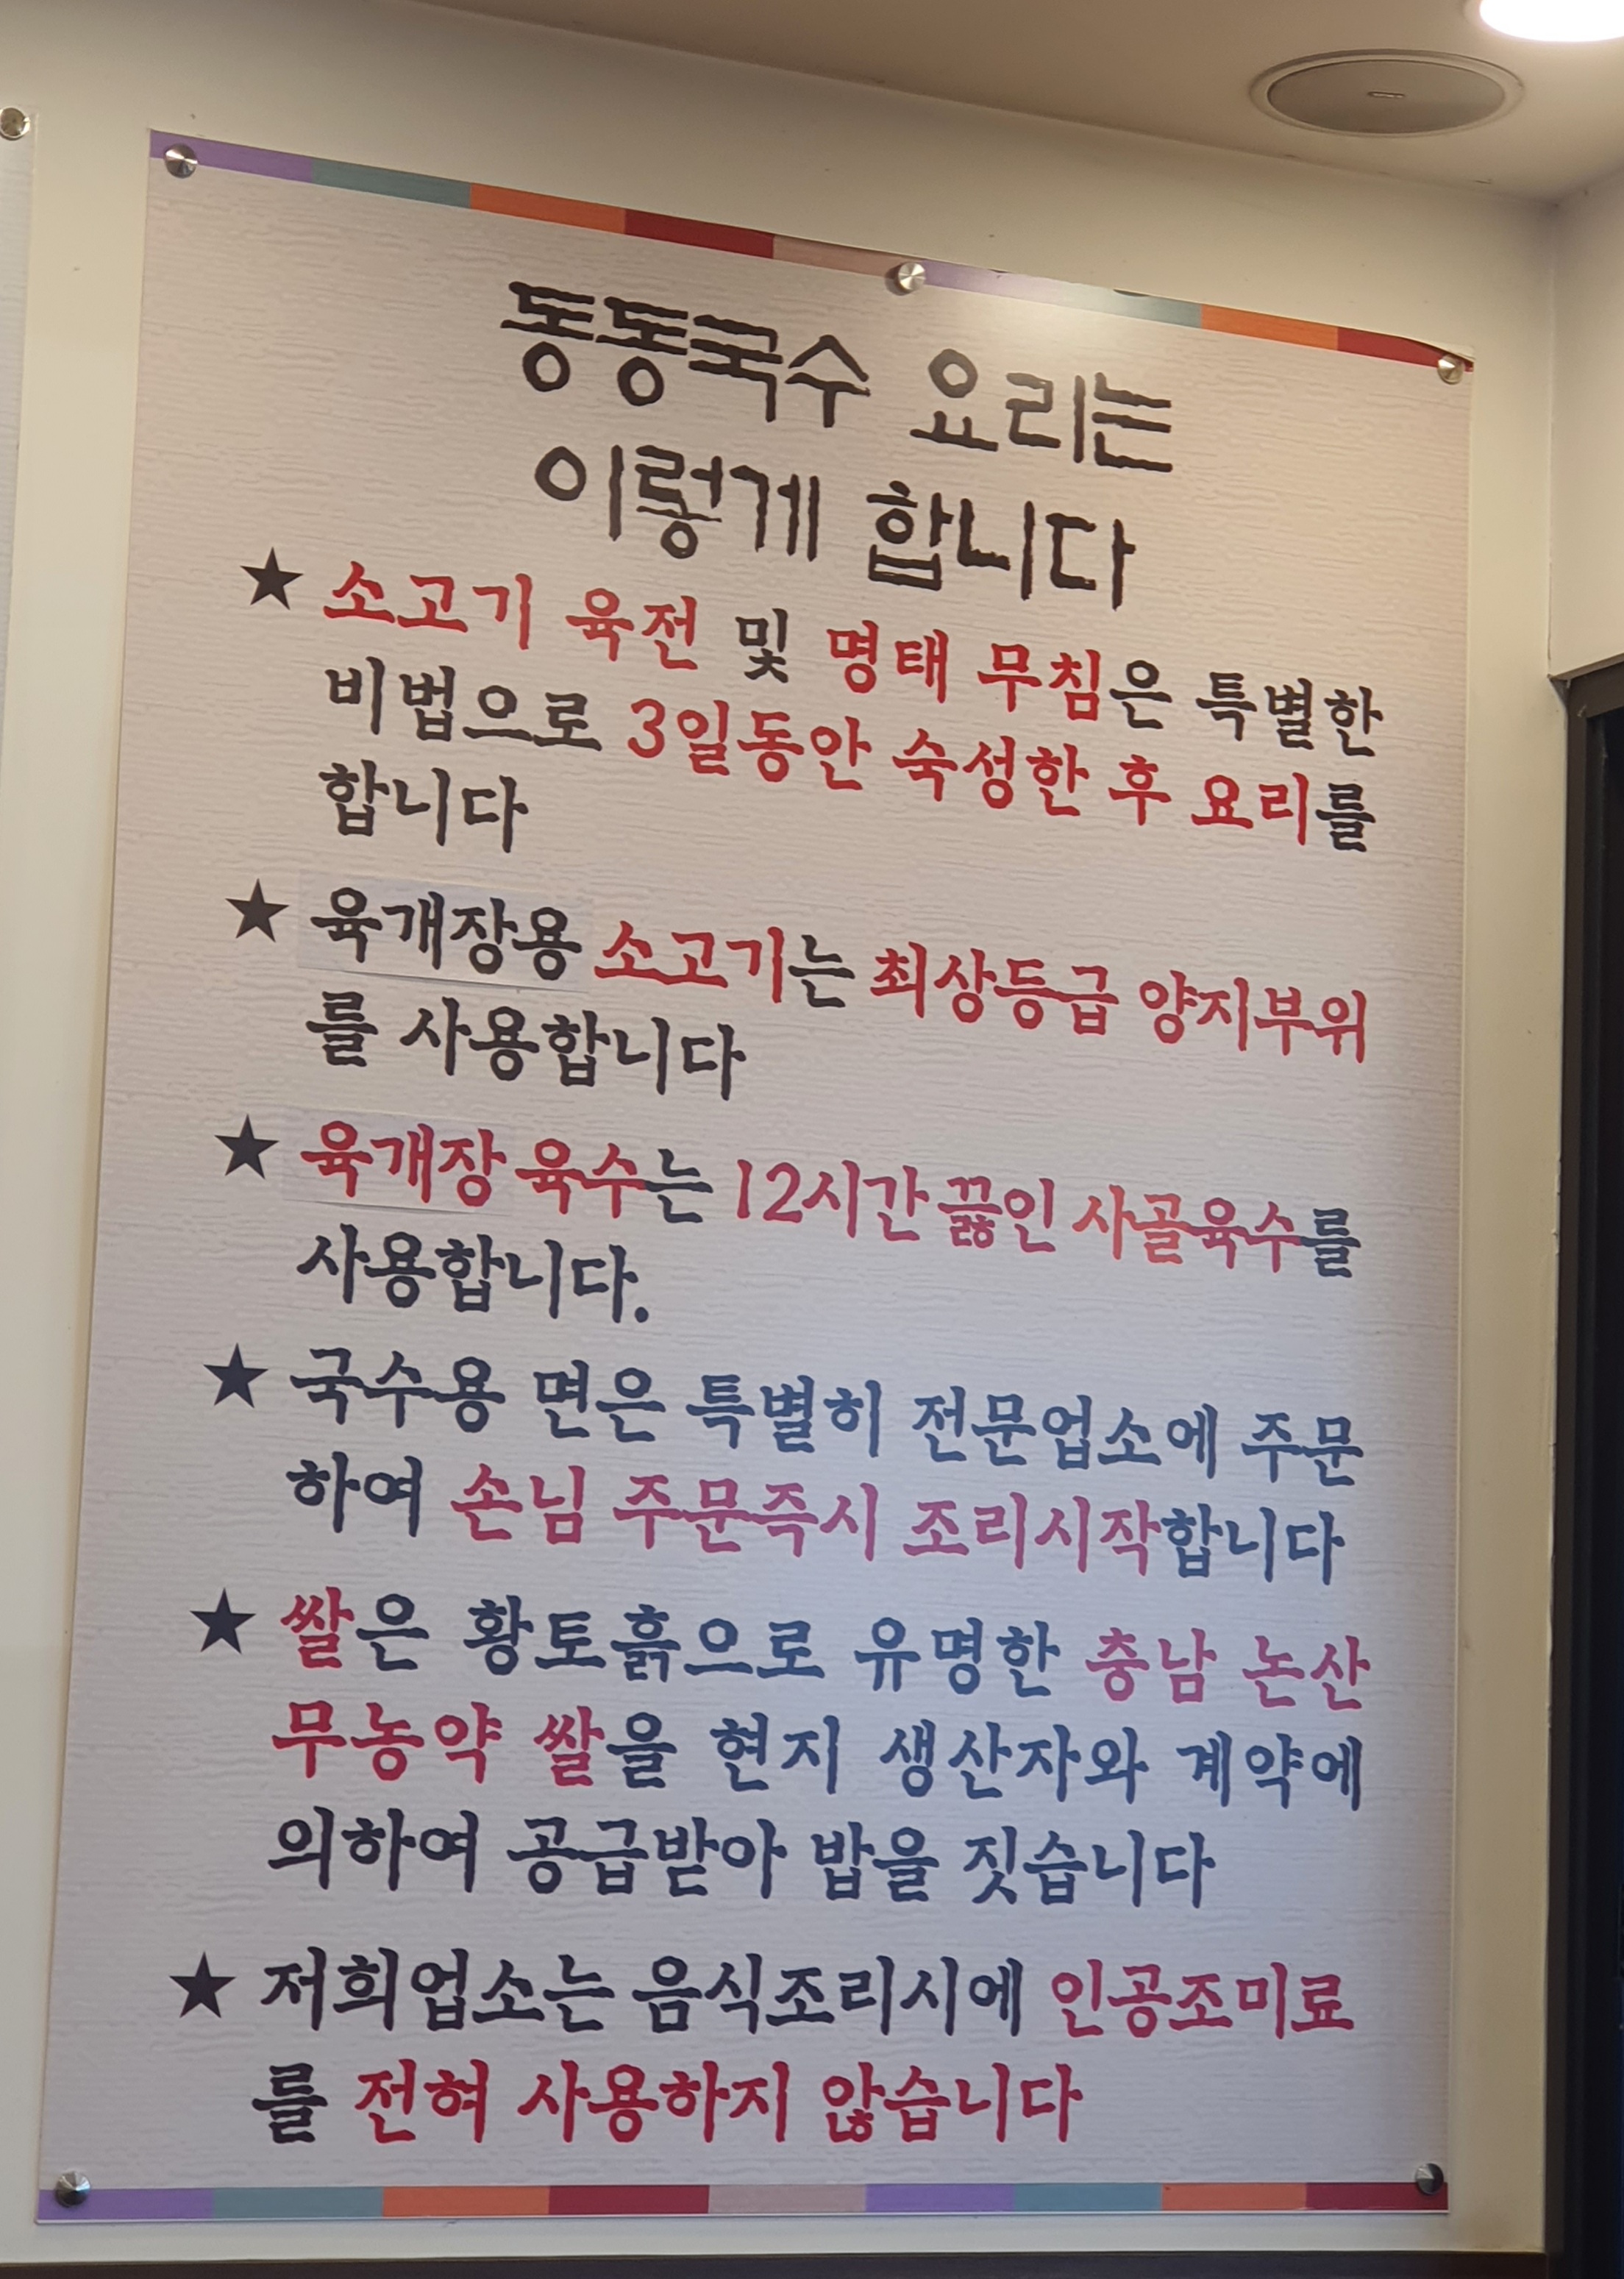 동동국수 요리는
이렇게 합니다
★ 소고기 육전 및 명태 무침은 특별한
비법으로 3일동안 숙성한 후 요리를
합니다
★ 육개장용 소고기는 최상등급 양지부위
를 사용합니다
★ 육개장 육수는 12시간 끓인 사골육수를
사용합니다.
★ 국수용 면은 특별히 전문업소에 주문
하여 손님 주문즉시 조리시작합니다
★ 쌀은 황토흙으로 유명한 충남 논산
무농약 쌀을 현지 생산자와 계약에
의하여 공급받아 밥을 짓습니다
★ 저희업소는 음식조리시에 인공조미료
를 전혀 사용하지 않습니다